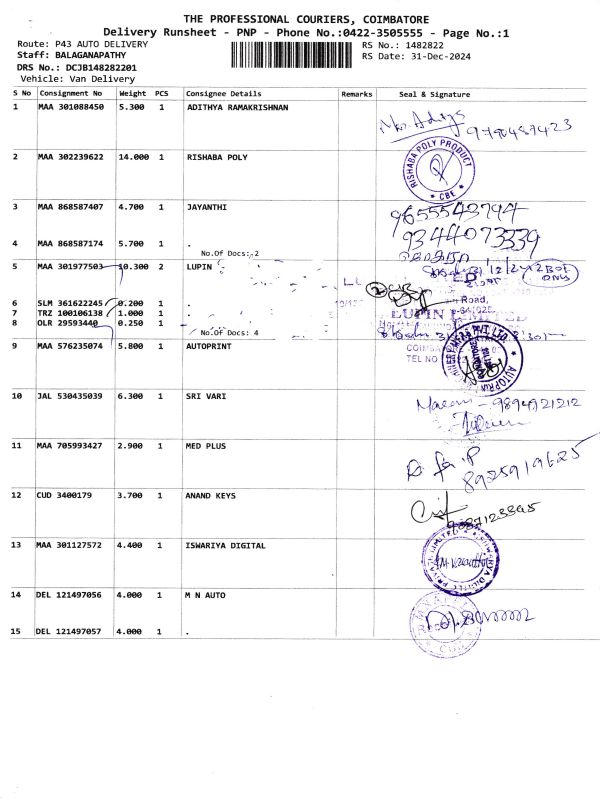 THE PROFESSIONAL COURIERS, COIMBATORE
Delivery Runsheet - PNP - Phone No.:0422-3505555 - Page No.:1
Route: P43 AUTO DELIVERY RS No.: 1482822
Staff: BALAGANAPATHY RS Date: 31-Dec-2024
DRS No.: DCJB148282201
Vehicle: Van Delivery
S No Consignment No Weight PCS Consignee Details Remarks Seal & Signature
1 MAA 301088450 5.300 1 ADITHYA RAMAKRISHNAN
2 MAA 302239622 14.000 1 RISHABA POLY
RISHABA POLY PRODUCT
* CBE *
3 MAA 868587407 4.700 1 JAYANTHI 9655543794
9344073339
4 MAA 868587174 5.700 1 .
No.Of Docs: 2
5 MAA 301977503 10.300 2 LUPIN
6 SLM 361622245 0.200 1 .
7 TRZ 100106138 1.000 1 .
8 OLR 29593440 0.250 1 .
No.Of Docs: 4
Road,
LUPIN LIMITED
TEL NO
9 MAA 576235074 5.800 1 AUTOPRINT
10 JAL 530435039 6.300 1 SRI VARI
9894921212
11 MAA 705993427 2.900 1 MED PLUS
8925919625
12 CUD 3400179 3.700 1 ANAND KEYS
13 MAA 301127572 4.400 1 ISWARIYA DIGITAL
14 DEL 121497056 4.000 1 M N AUTO
15 DEL 121497057 4.000 1 .